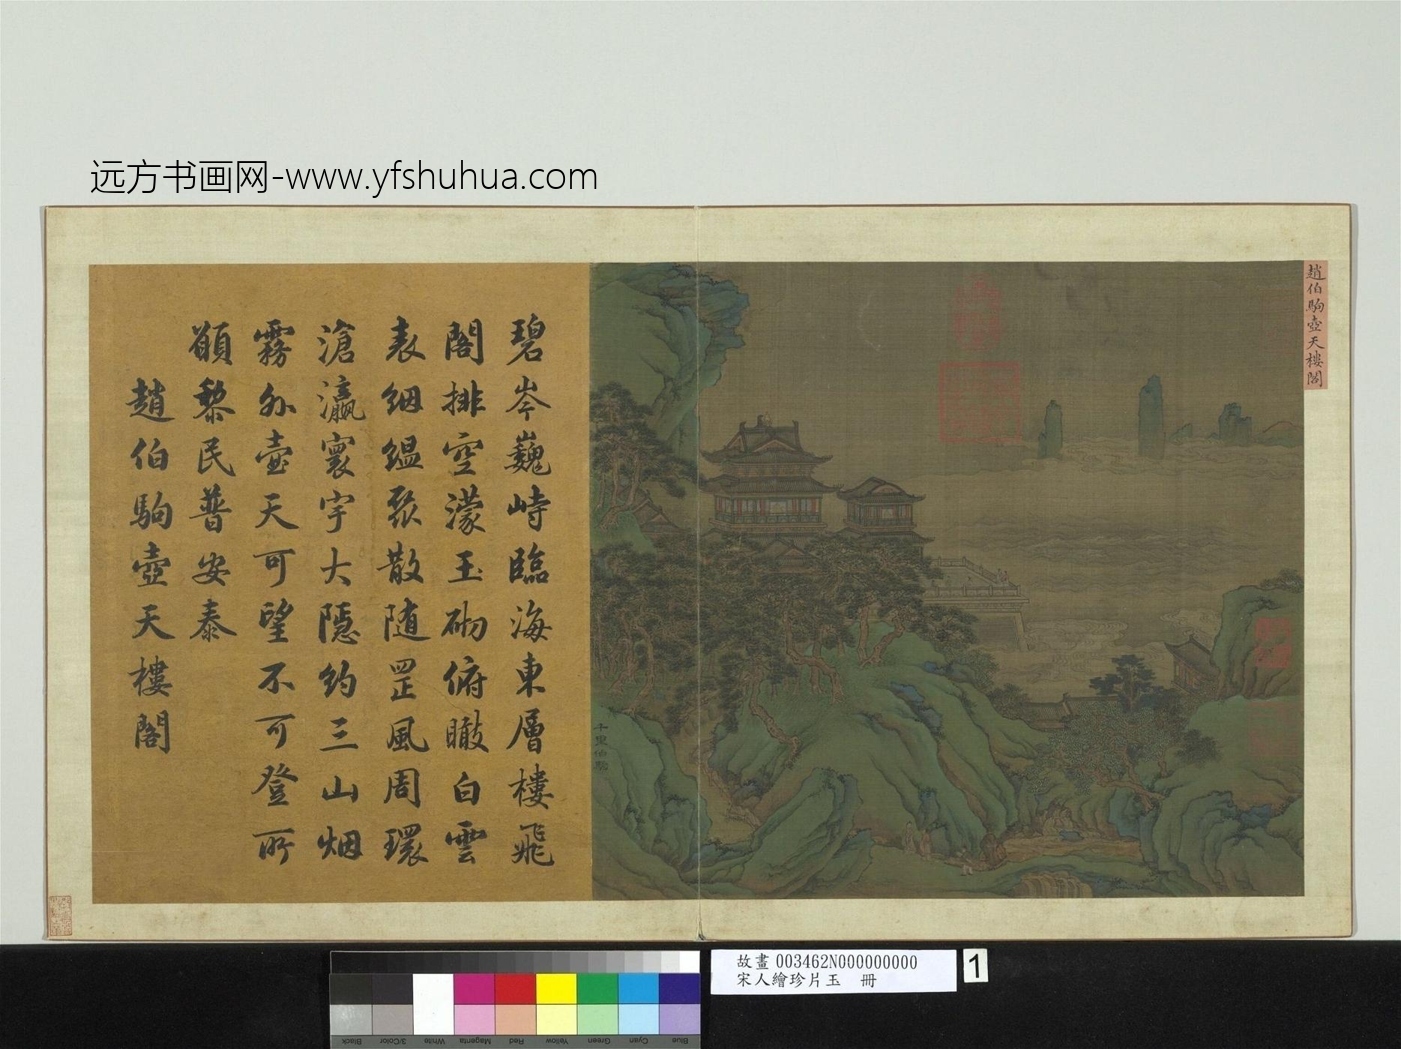 远方书画网-www.yfshuhua.com
趙伯駒壺天樓閣
碧岑巍峙臨海東層樓飛
閣排空濛玉砌俯瞰白雲
表絪縕聚散随罡風周環
滄瀛寰宇大隱約三山烟
霧外壺天可望不可登所
願黎民普安泰
趙伯駒壺天樓閣
千里伯駒
故畫 003462N000000000
宋人繪珍片玉 冊
1
Black
3/Color
White
Magenta
Red
Yellow
Green
Cyan
Blue